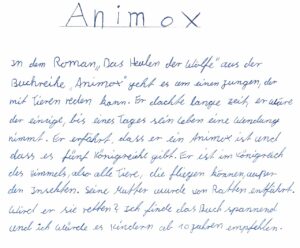 Animox
In dem Roman „Das Heulen der Wölfe" aus der
Buchreihe „Animox" geht es um einen Jungen, der
mit Tieren reden kann. Er dachte lange Zeit, er wäre
der einzige, bis eines Tages sein Leben eine Wendung
nimmt. Er erfährt, dass er ein Animox ist und
dass es fünf Königreiche gibt. Er ist im Königreich
des Himmels, also alle Tiere, die fliegen können, außer
den Insekten. Seine Mutter wurde von Ratten entführt.
Wird er sie retten? Ich finde das Buch spannend
und ich würde es Kindern ab 10 Jahren empfehlen.